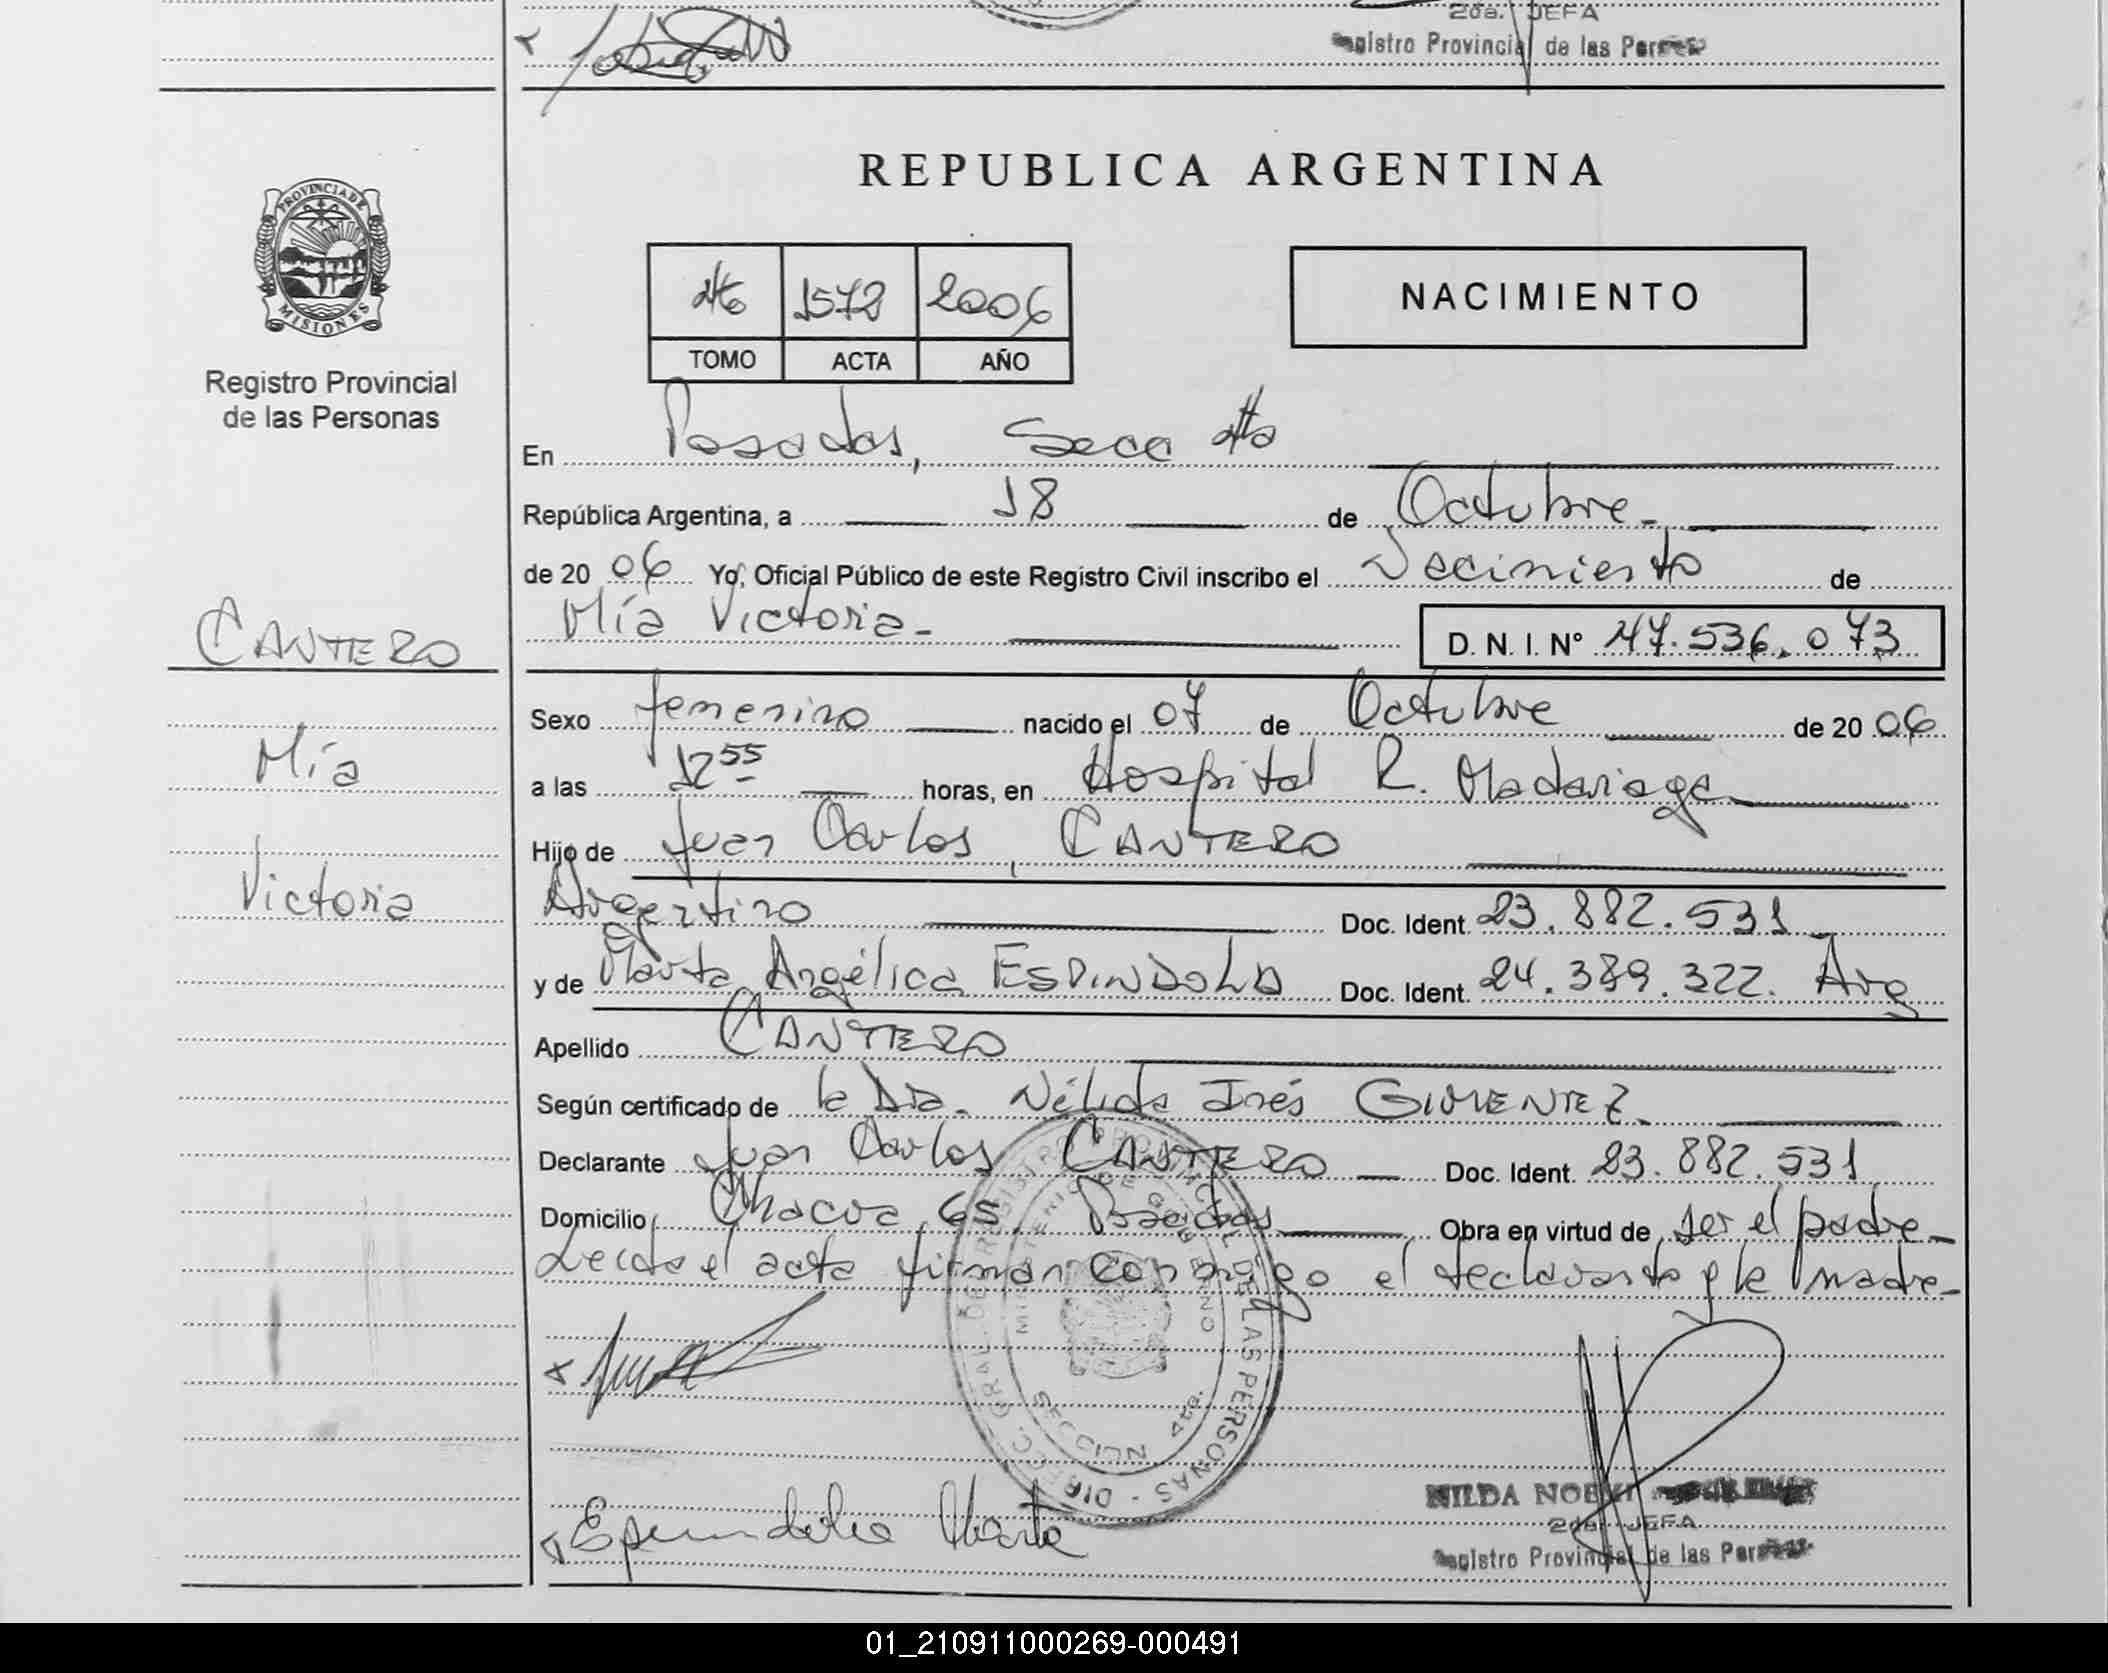 2da. JEFA
Registro Provincial de las Personas
PROVINCIA DE
MISIONES
Registro Provincial
de las Personas
REPUBLICA ARGENTINA
4to 1572 2006
TOMO ACTA AÑO
NACIMIENTO
En Posadas, Secc 4to
República Argentina, a 18 de Octubre
de 2006 Yo, Oficial Público de este Registro Civil inscribo el Nacimiento de
Mía Victoria D. N. I. Nº 47.536.073
CANTERO
Mía
Victoria
Sexo femenino nacido el 07 de Octubre de 2006
a las 12 55 horas, en Hospital R. Madariaga
Hijo de Juan Carlos, CANTERO
Argentino Doc. Ident. 23.882.531
y de Marta Angélica ESPINDOLA Doc. Ident. 24.389.322. Arg
Apellido CANTERO
Según certificado de la Dra. Nélida Inés GIMENEZ
Declarante Juan Carlos CANTERO Doc. Ident. 23.882.531
Domicilio Chacra 65 Posadas Obra en virtud de ser el padre
Leida el acta firman conmigo el declarante y la madre
DIRECC. GRAL. DE REGISTRO PROVINCIAL DE LAS PERSONAS
MINISTERIO DE GOBIERNO
SECCION 4ta.
Marta
NILDA NOEMI
2da. JEFA
Registro Provincial de las Personas
01_210911000269-000491